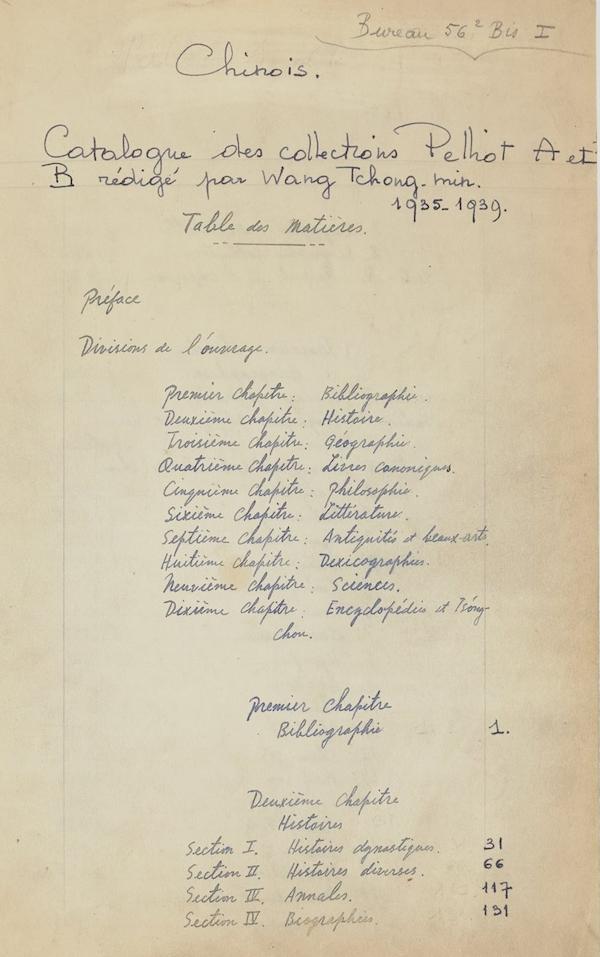 Bureau 56² Bis I
Chinois.
Catalogue des collections Pelliot A et
B rédigé par Wang Tchong-min.
1935-1939.
Table des matières.
Préface
Divisions de l'ouvrage.
Premier chapitre: Bibliographie.
Deuxième chapitre: Histoire.
Troisième chapitre: Géographie.
Quatrième chapitre: Livres canoniques.
Cinquième chapitre: Philosophie.
Sixième chapitre: Littérature.
Septième chapitre: Antiquités et beaux-arts.
Huitième chapitre: Lexicographies.
Neuvième chapitre: Sciences.
Dixième chapitre: Encyclopédies et Ts'ong-
chou.
Premier chapitre
Bibliographie 1.
Deuxième chapitre
Histoires
Section I. Histoires dynastiques. 31
Section II. Histoires diverses. 66
Section IV. Annales. 117
Section IV. Biographies. 131